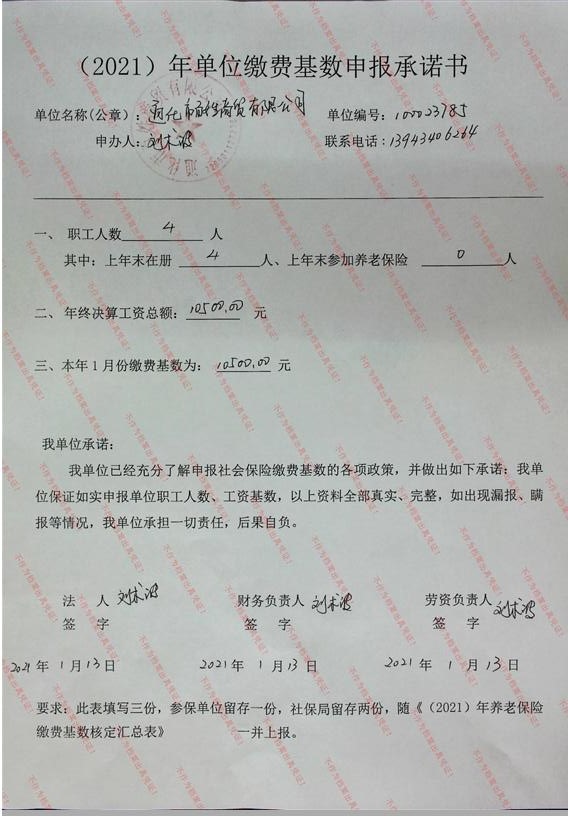 （2021）年单位缴费基数申报承诺书
单位名称(公章)：通化市 商贸有限公司 单位编号：100023785
申办人：刘术波 联系电话：13943406264
一、 职工人数 4 人
其中：上年末在册 4 人、上年末参加养老保险 0 人
二、 年终决算工资总额：10500.00 元
三、本年 1 月份缴费基数为： 10500.00 元
我单位承诺：
我单位已经充分了解申报社会保险缴费基数的各项政策，并做出如下承诺：我单
位保证如实申报单位职工人数、工资基数，以上资料全部真实、完整，如出现漏报、瞒
报等情况，我单位承担一切责任，后果自负。
法 人 刘术波 财务负责人 刘术波 劳资负责人 刘术波
签 字 签 字 签 字
2021 年 1 月 13 日 2021 年 1 月 13 日 2021 年 1 月 13 日
要求：此表填写三份，参保单位留存一份，社保局留存两份，随《（2021）年养老保险
缴费基数核定汇总表》 一并上报。